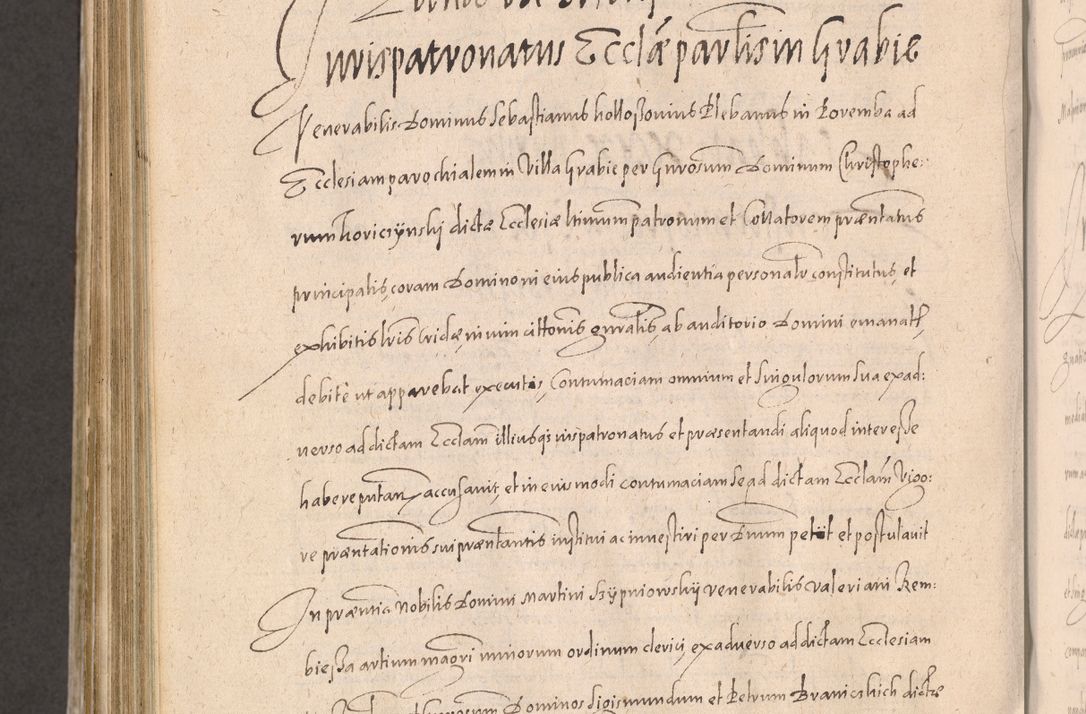 Iurispatronatus Ecclae parlis in Grabie
Venerabilis Dominus Sebastianus hollossouius Plebanus in Poremba ad
Ecclesiam parochialem in Villa Grabie per Gnrosum Dominum Christophe:
rum Koriczynskj dictæ Ecclesiæ ltimum patronum et Collatorem præntatus
principalis, coram Domino ni eius publica audientia personalr constitutus, et
exhibitis lris Cridæ, in vim cittonis gnralis, ab auditorio Domini emanatis,
debitè ut apparebat executis, Contumaciam omnium et Singulorum sua exad:
uerso ad dictam Ecclam illiusq iuspatronatus et præsentandi aliquod interesse
habere putan, accusauit, et in eiusmodi contumaciam se ad dictam Ecclam vigo:
re præntationis sui præntantis institui ac inuestiri per Dnum petiit et postulauit
In præntia Nobilis Domini Martini Szypniowskij venerabilis Valeriani Rem:
biessa artium magri minorum ordinum clerici, exaduerso ad dictam Ecclesiam
Dominos Sigismundum et Petrum Branickich dictæ